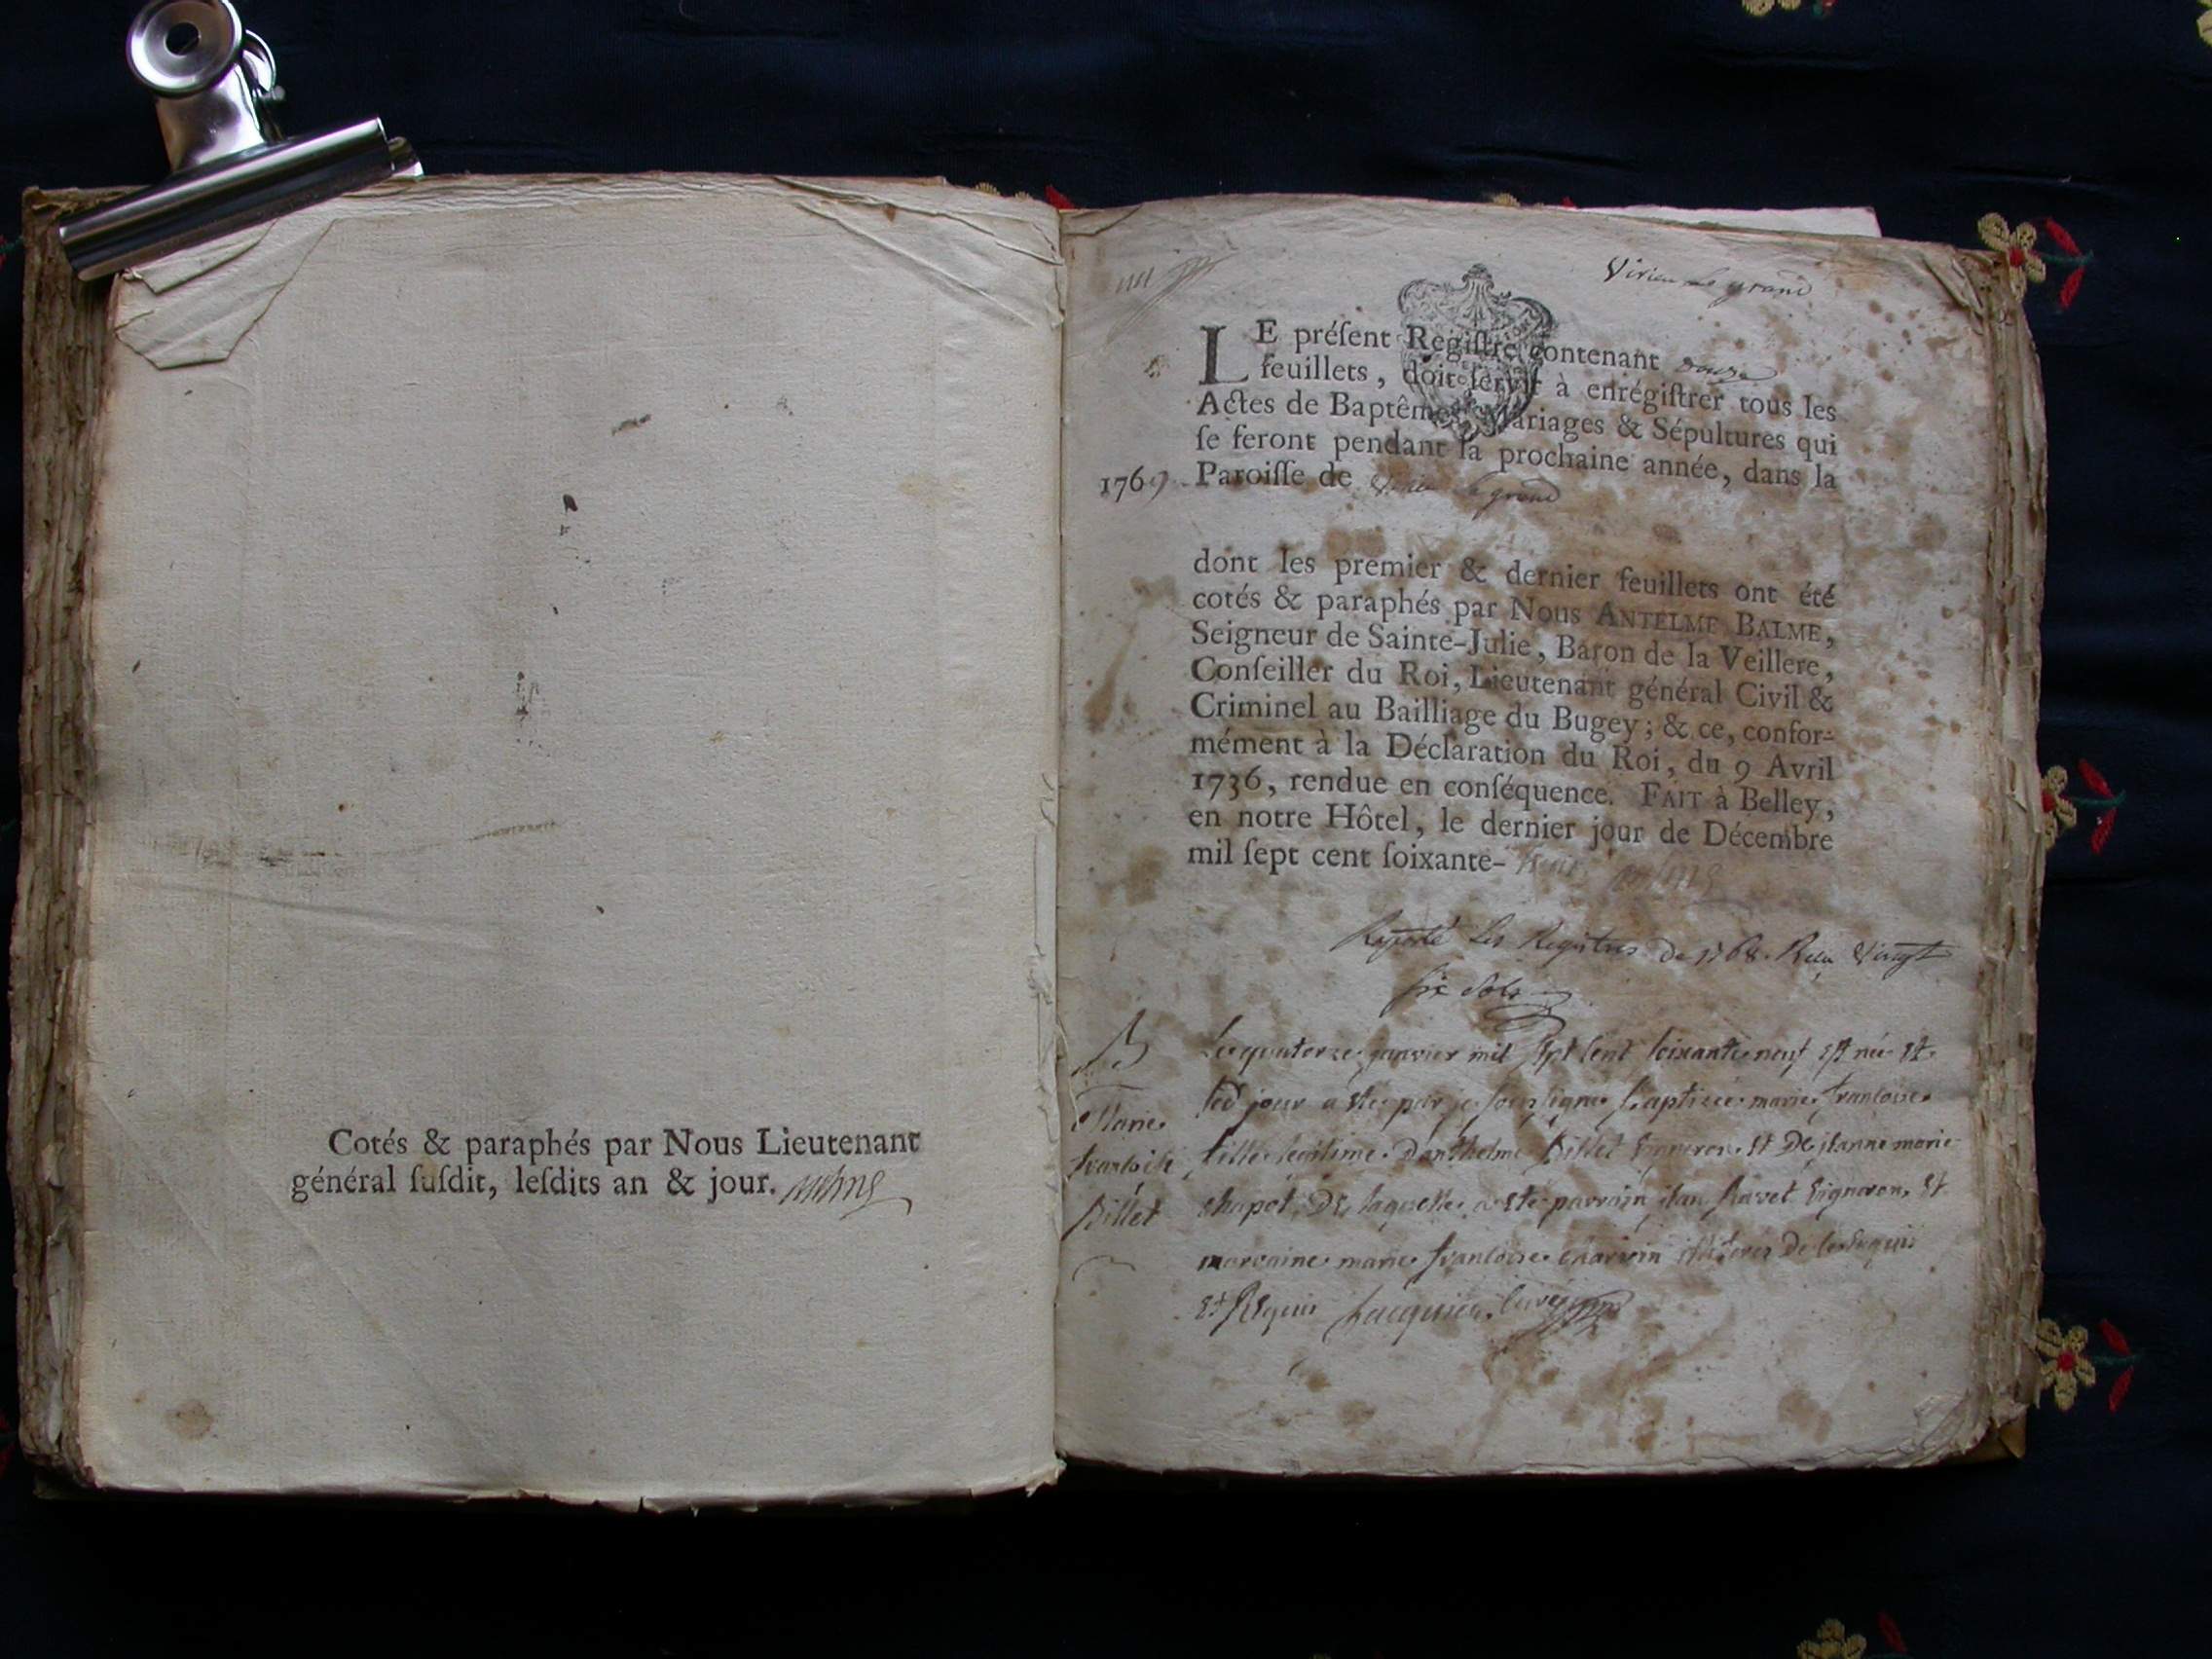 Cotés & paraphés par Nous Lieutenant
général ſuſdit, leſdits an & jour.
Virieu Le grand
LE préſent Regiſtre contenant douze
feuillets, doit ſervir à enrégiſtrer tous les
Actes de Baptêmes, Mariages & Sépultures qui
ſe feront pendant la prochaine année, dans la
1769 Paroiſſe de Virieu Le grand
dont les premier & dernier feuillets ont été
cotés & paraphés par Nous ANTELME BALME,
Seigneur de Sainte-Julie, Baron de la Veillere,
Conſeiller du Roi, Lieutenant général Civil &
Criminel au Bailliage du Bugey; & ce, confor-
mément à la Déclaration du Roi, du 9 Avril
1736, rendue en conſéquence. FAIT à Belley,
en notre Hôtel, le dernier jour de Décembre
mil ſept cent ſoixante- huit
Raporté Les Registres de 1768. Reçu Vingt
six sols
B
Marie
francoise
Billet
Le quatorze janvier mil sept cent soixante neuf est née et
led jour a ete par je soussigne baptisée marie francoise
fille legitime d'anthelme Billet vigneron et de jeanne marie
chapot, de laquelle a ete parrain jean Ravet vigneron, et
marraine marie francoise charvin illiteres de ce enquis
et Requis Jacquier, curé